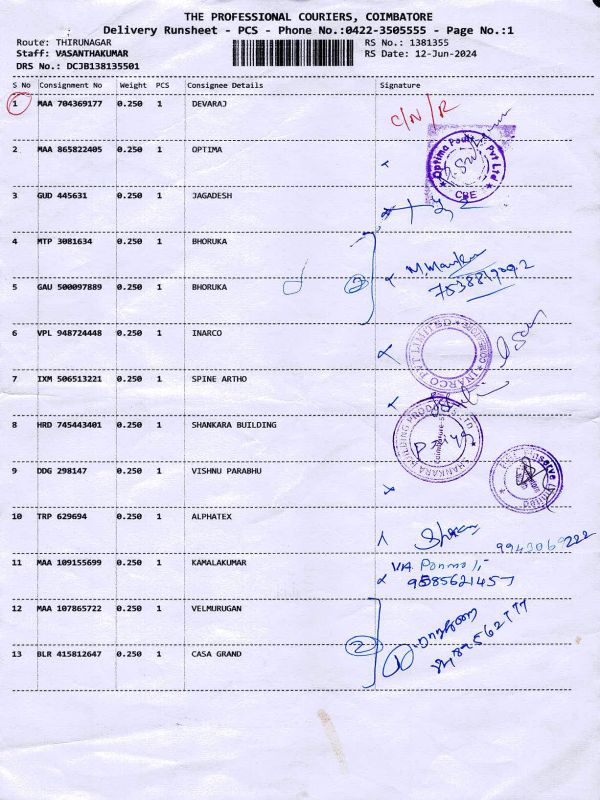 THE PROFESSIONAL COURIERS, COIMBATORE
Delivery Runsheet - PCS - Phone No.:0422-3505555 - Page No.:1
Route: THIRUNAGAR RS No.: 1381355
Staff: VASANTHAKUMAR RS Date: 12-Jun-2024
DRS No.: DCJB138135501
S No Consignment No Weight PCS Consignee Details Signature
1 MAA 704369177 0.250 1 DEVARAJ C/N/R
2 MAA 865822405 0.250 1 OPTIMA
Optima Poult Pvt Ltd
CBE
3 GUD 445631 0.250 1 JAGADESH
4 MTP 3081634 0.250 1 BHORUKA
5 GAU 500097889 0.250 1 BHORUKA 2
6 VPL 948724448 0.250 1 INARCO
INARCO PVT LIMITED
7 IXM 506513221 0.250 1 SPINE ARTHO
8 HRD 745443401 0.250 1 SHANKARA BUILDING
SHANKARA BUILDING PRODUCTS LTD
9 DDG 298147 0.250 1 VISHNU PARABHU
10 TRP 629694 0.250 1 ALPHATEX
11 MAA 109155699 0.250 1 KAMALAKUMAR VIA
9585621457
12 MAA 107865722 0.250 1 VELMURUGAN
2
13 BLR 415812647 0.250 1 CASA GRAND